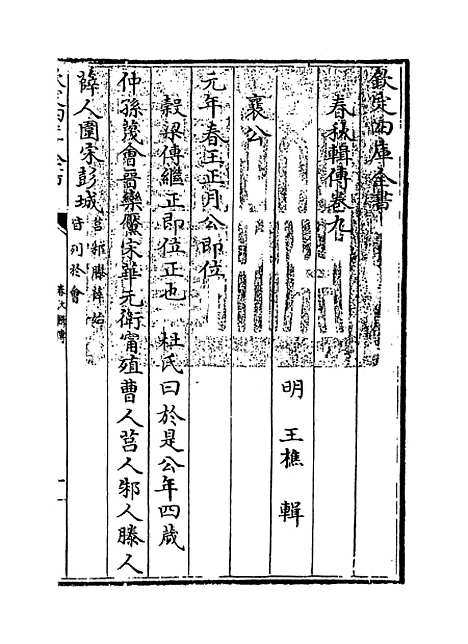 欽定四庫全書
春秋輯傳卷九
明 王樵 輯
襄公
元年春王正月公即位
穀梁傳繼正即位正也 杜氏曰於是公年四歲
仲孫蔑會晉欒黶宋華元衛甯殖曹人莒人邾人滕人
薛人圍宋彭城
莒邾滕薛始
皆列於會
春秋輯傳